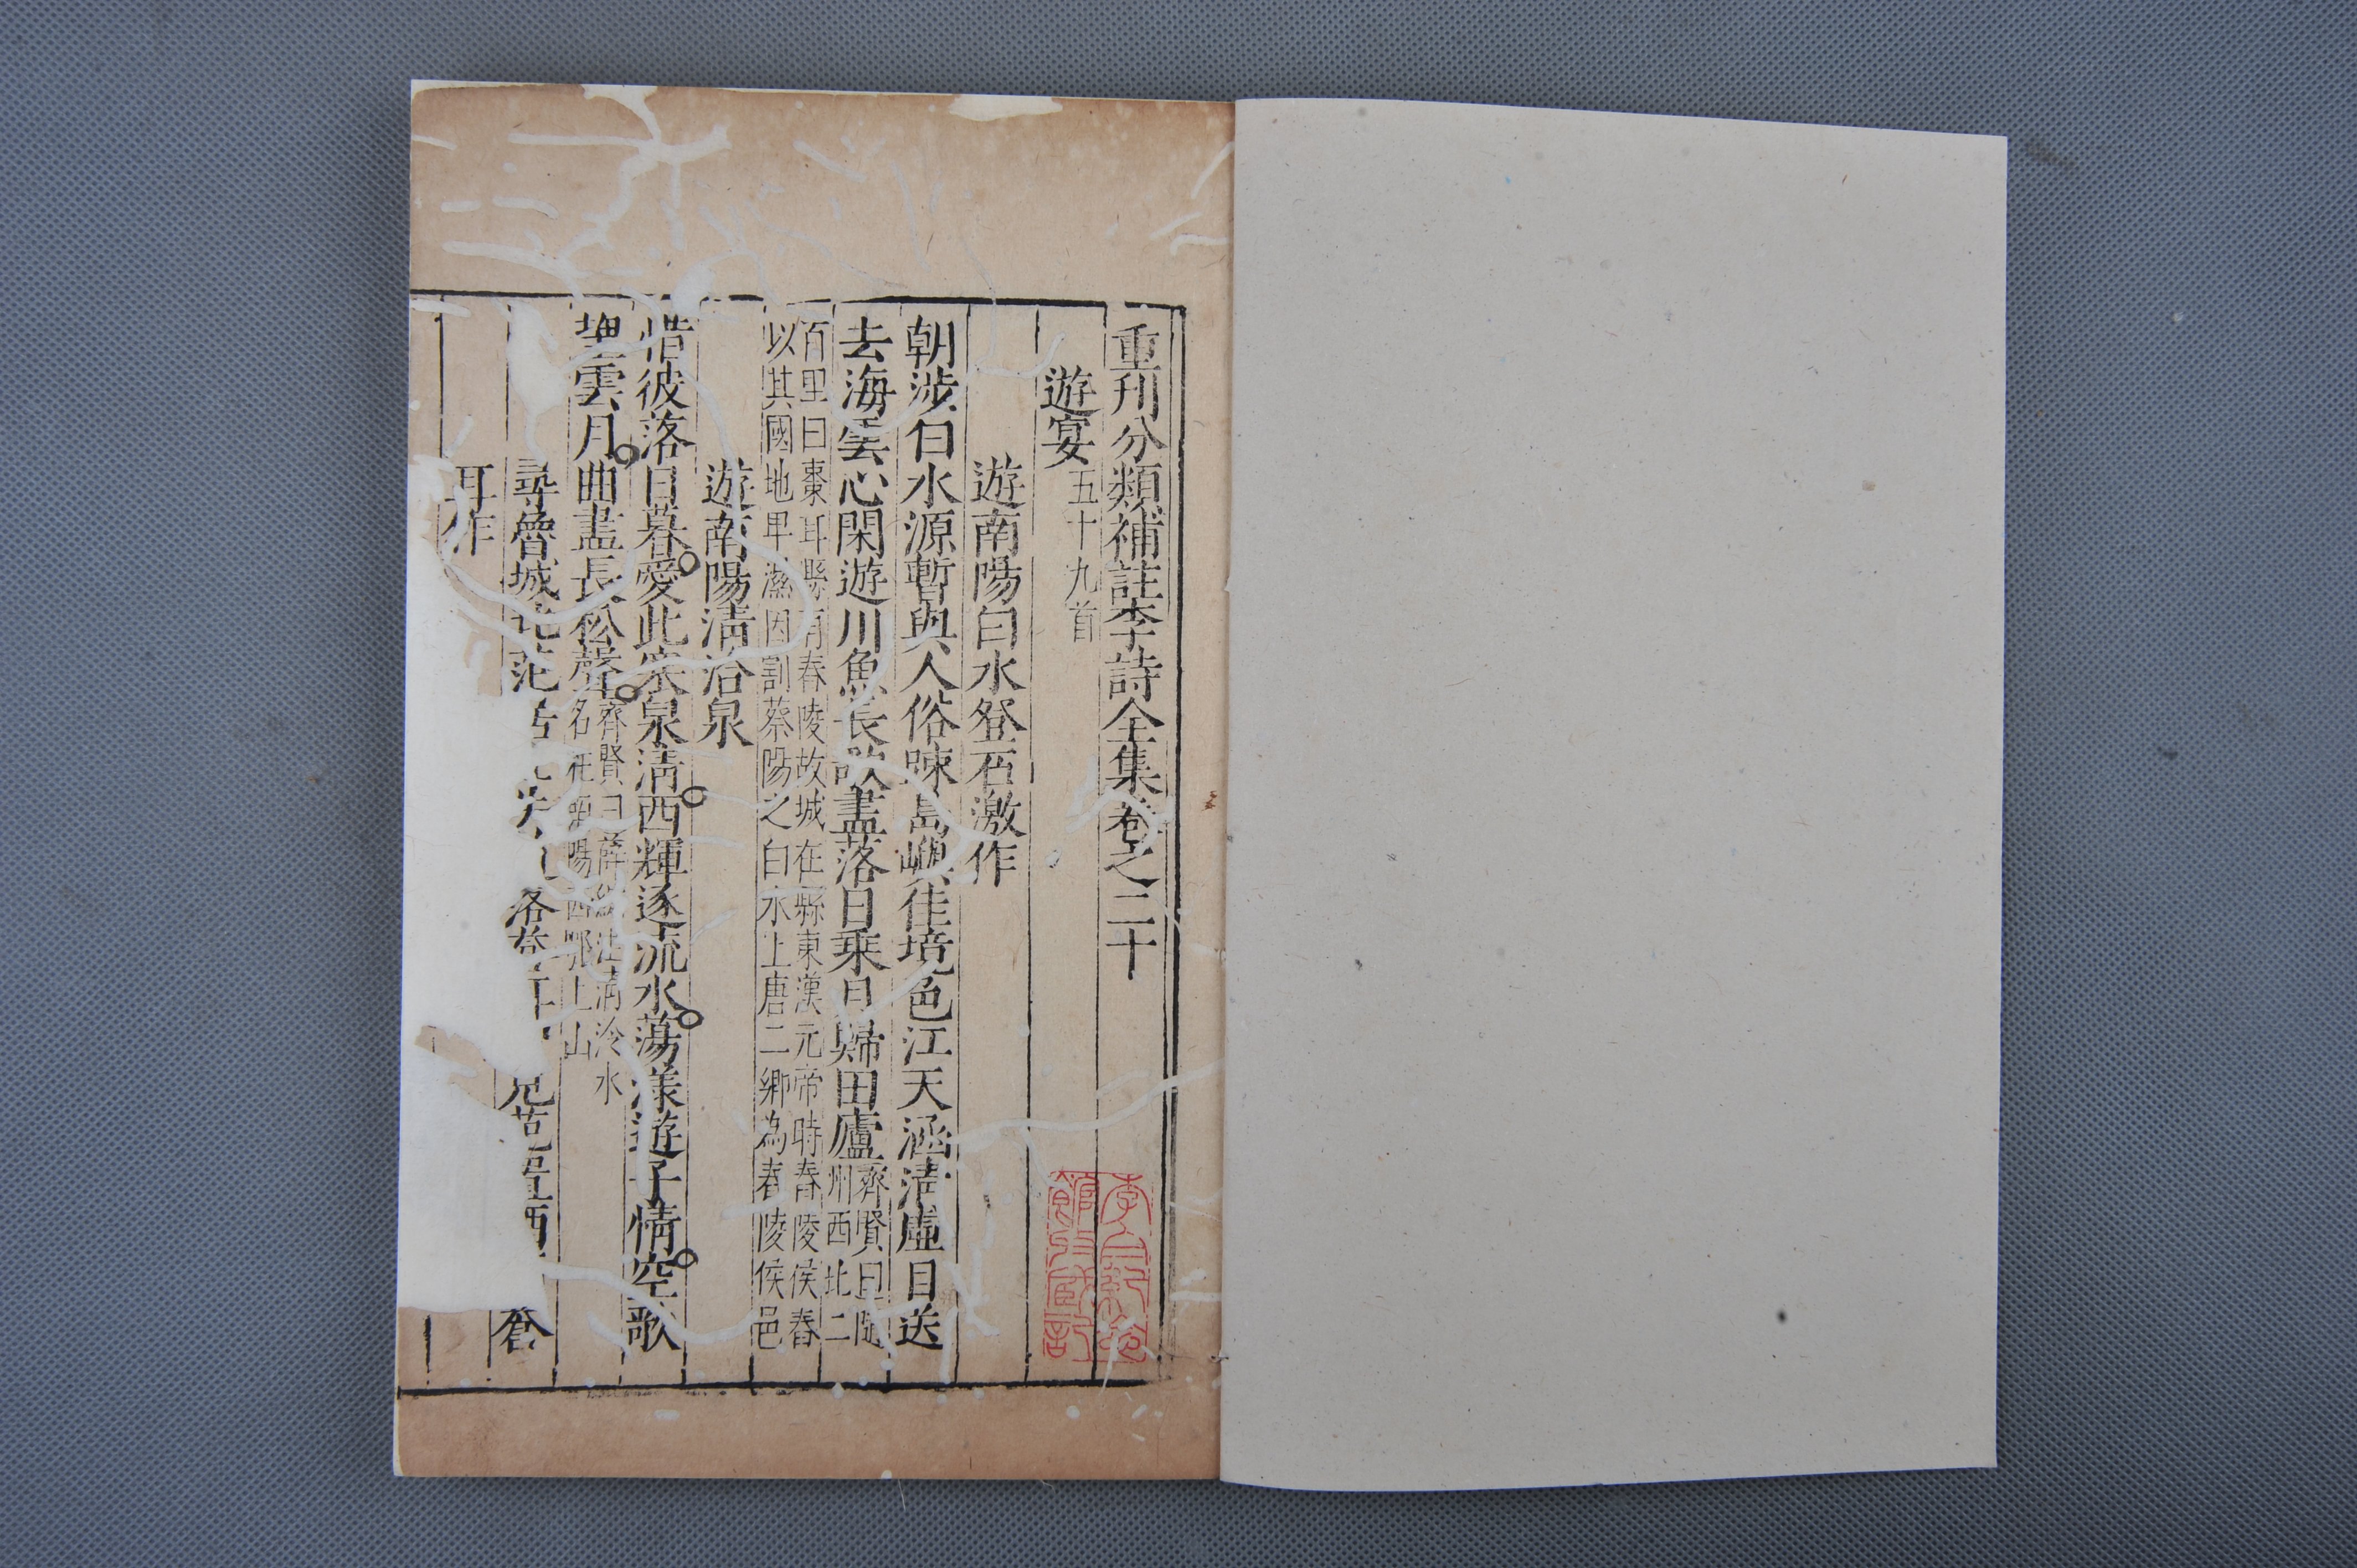 重刊分類補註李詩全集卷之二十
遊宴五十九首
遊南陽白水登石激作
朝涉白水源暫與人俗踈島嶼佳境色江天涵清虛目送
去海雲心閑遊川魚長歌盡落日乘月歸田廬齊賢曰隨州西北二
百里曰棗陽縣有舂陵故城在縣東漢元帝時舂陵侯春
以其國地卑濕因割蔡陽之白水上唐二鄉為舂陵侯邑
遊南陽清泠泉
惜彼落日暮愛此寒泉清西輝逐流水蕩漾遊子情空歌
望雲月曲盡長松聲齊賢曰薛綜注清泠水名在南陽西鄂上山
尋魯城北范居士失 落蒼 見范置酒 蒼
耳作